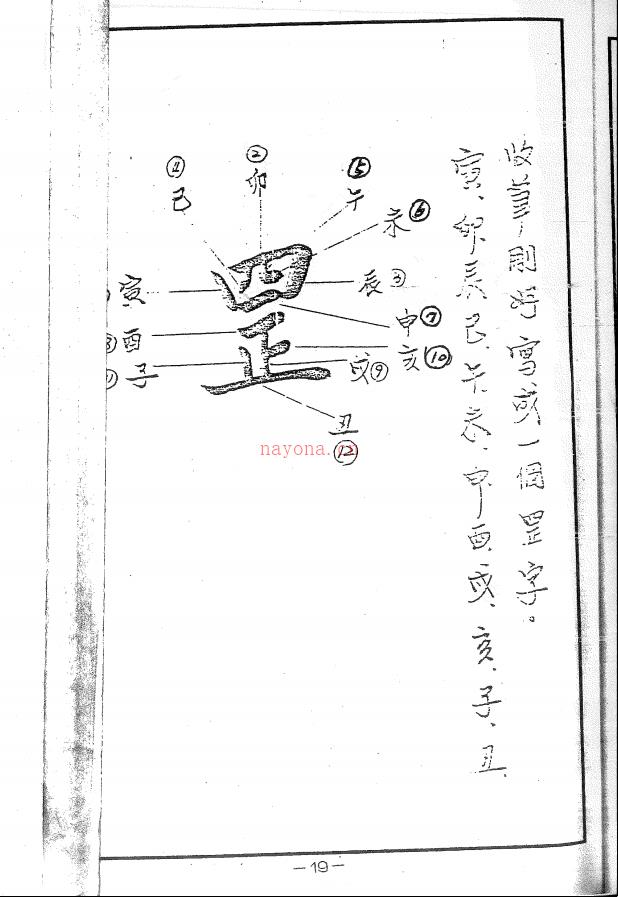 收筆則將寫成一個罡字。
寅、卯、辰、巳、午、未、申、酉、戌、亥、子、丑
② 卯
⑤ 午
④ 巳
未 ⑥
罡
寅
辰 ③
申 ⑦
酉
亥 ⑩
子
戌 ⑨
丑 ⑫
nayona.cn
—19—